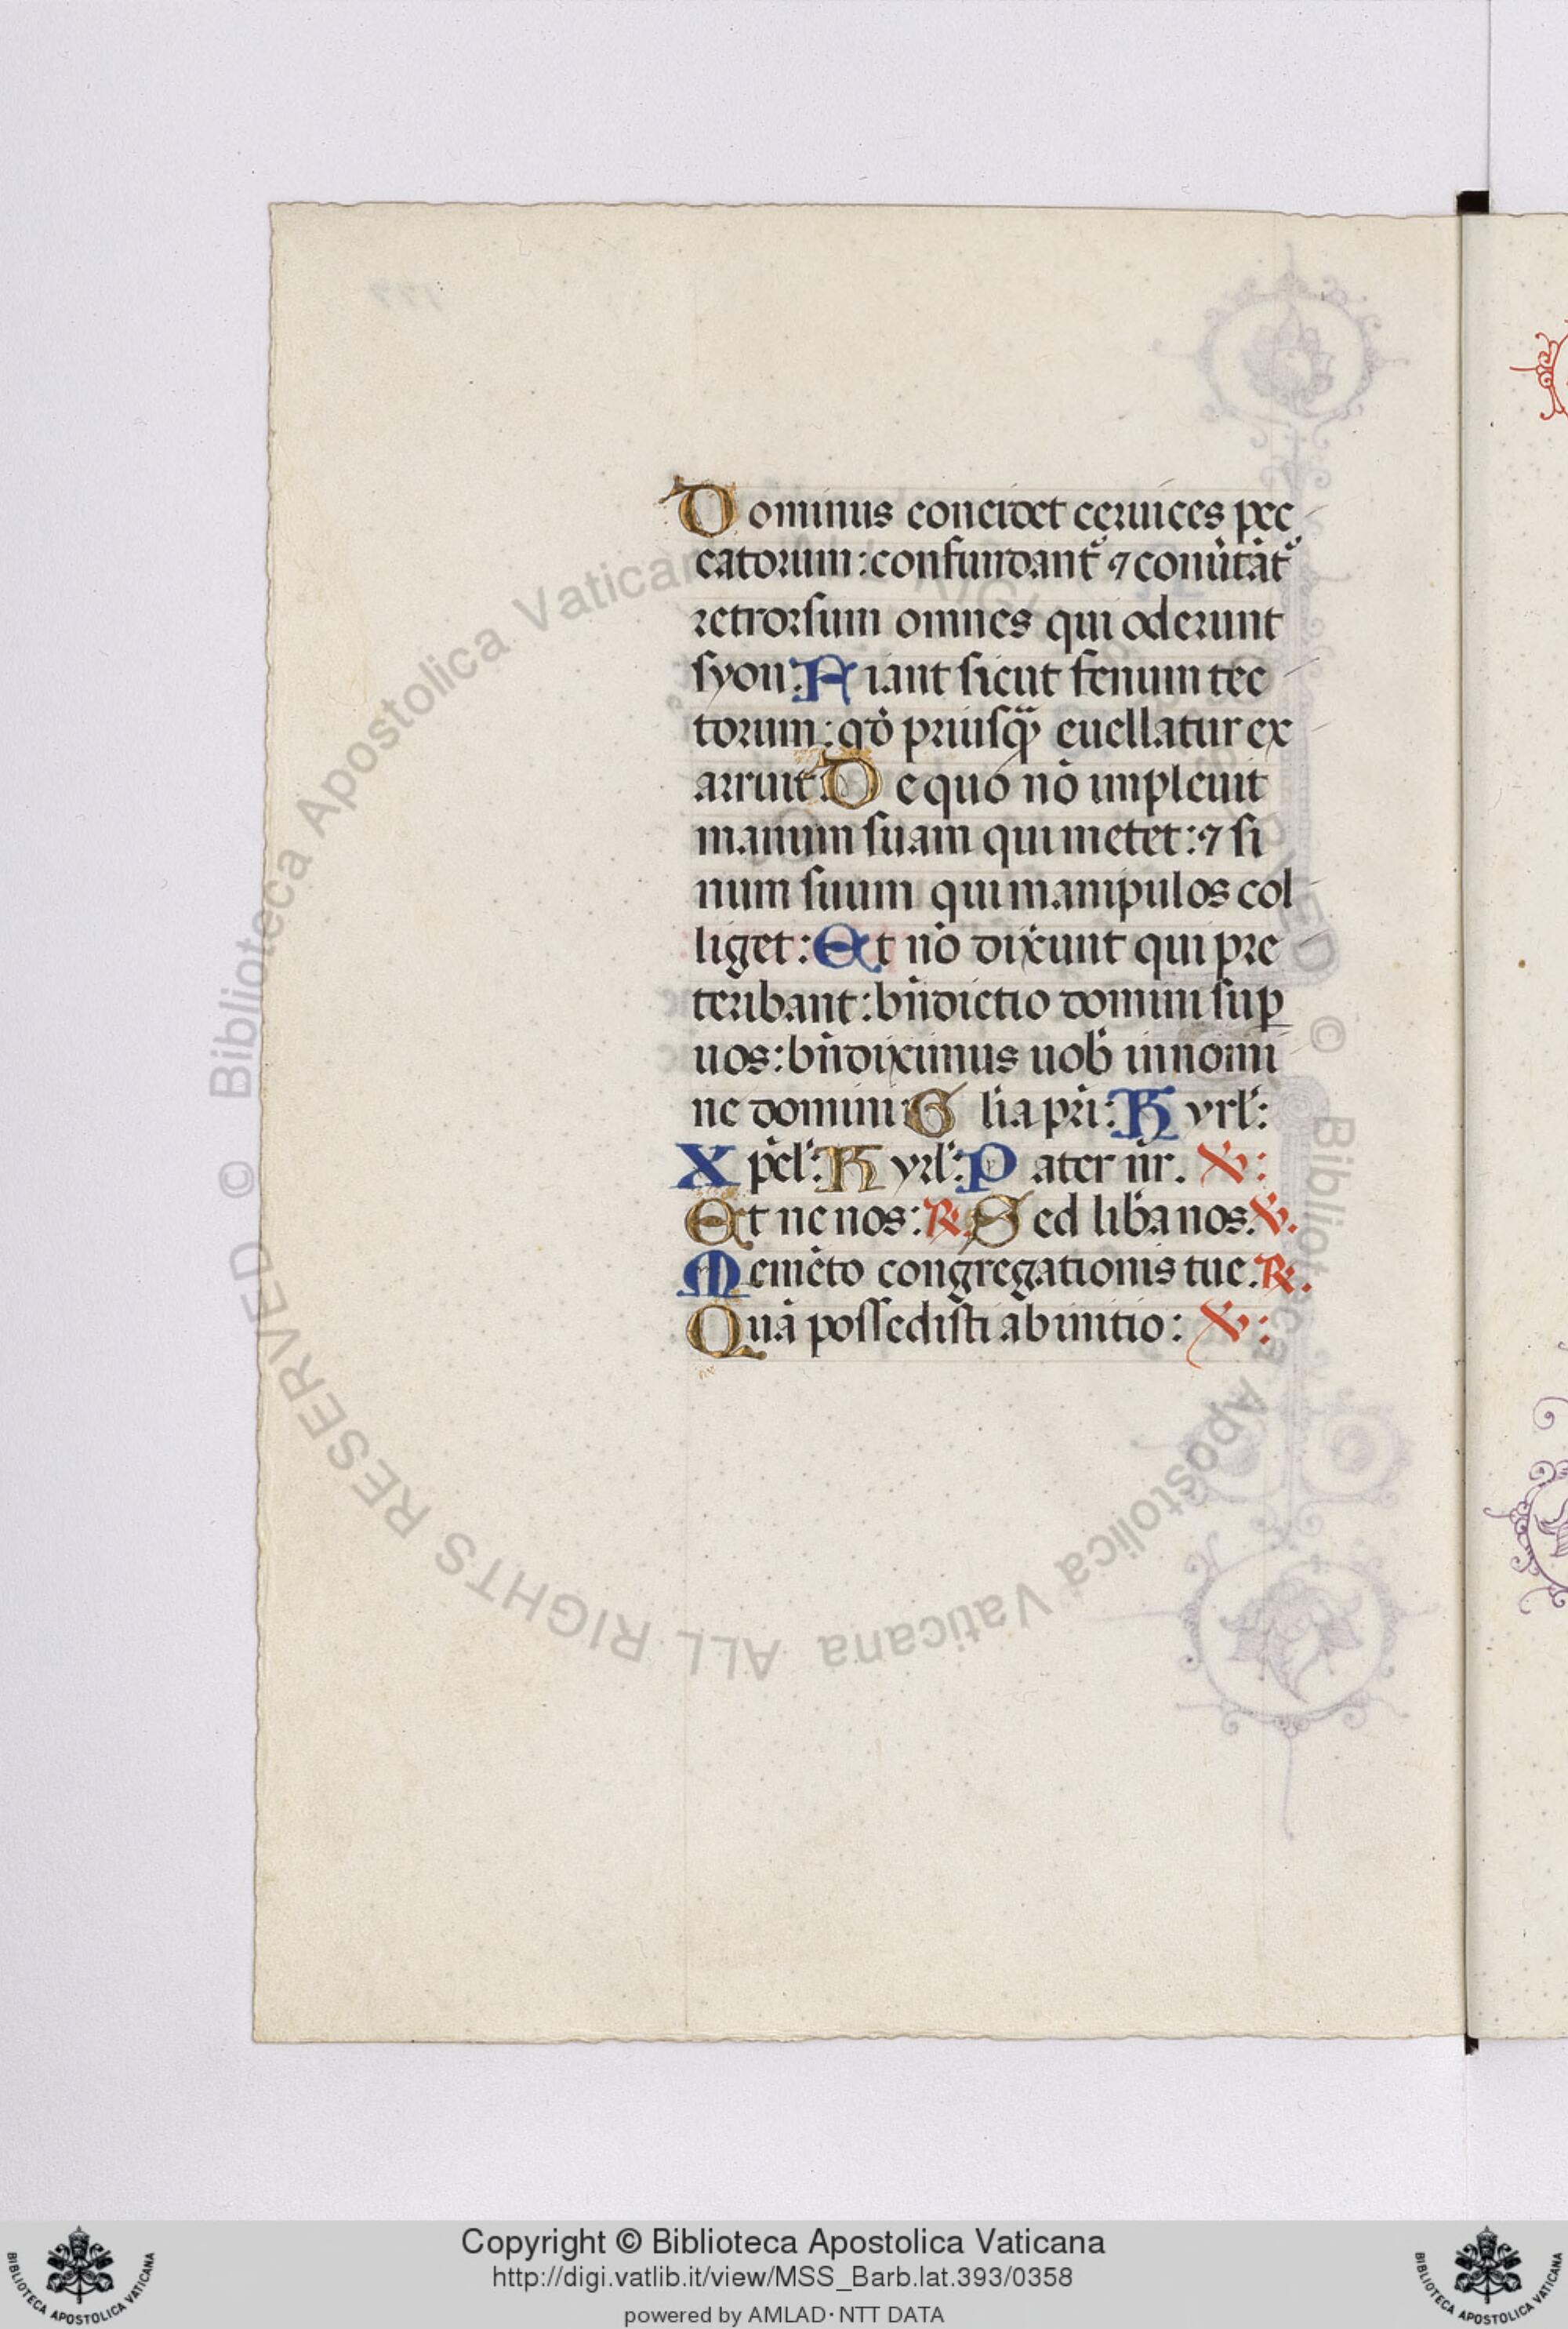 Dominus concidet ceruices pec
catorum: confundant᷑ ⁊ conu̓tãt᷑
retrorsum omnes qui oderunt
syon: Fiant sicut fenum tec
torum: qđ priusqȝ euellatur ex
arruit: De quo nõ impleuit
manum suam qui metet: ⁊ si
num suum qui manipulos col
liget: Et nõ dix̓unt qui pre
teribant: bñdictio domini suꝑ
uos: bñdiximus uob̓ in nomi
ne domini: Gl̓ia pr̃i: Kyrl̓:
Xp̓el̓: Kyrl̓: Pater nr̃. ℣:
Et ne nos: ℟. Sed lib̓a nos. ℣.
Memẽto congregationis tue. ℟.
Quã possedisti ab initio: ℣:
© Biblioteca Apostolica Vaticana ALL RIGHTS RESERVED © Biblioteca Apostolica Vaticana ALL RIGHTS RESERVED
Copyright © Biblioteca Apostolica Vaticana
http://digi.vatlib.it/view/MSS_Barb.lat.393/0358
powered by AMLAD·NTT DATA
BIBLIOTECA APOSTOLICA VATICANA
BIBLIOTECA APOSTOLICA VATICANA